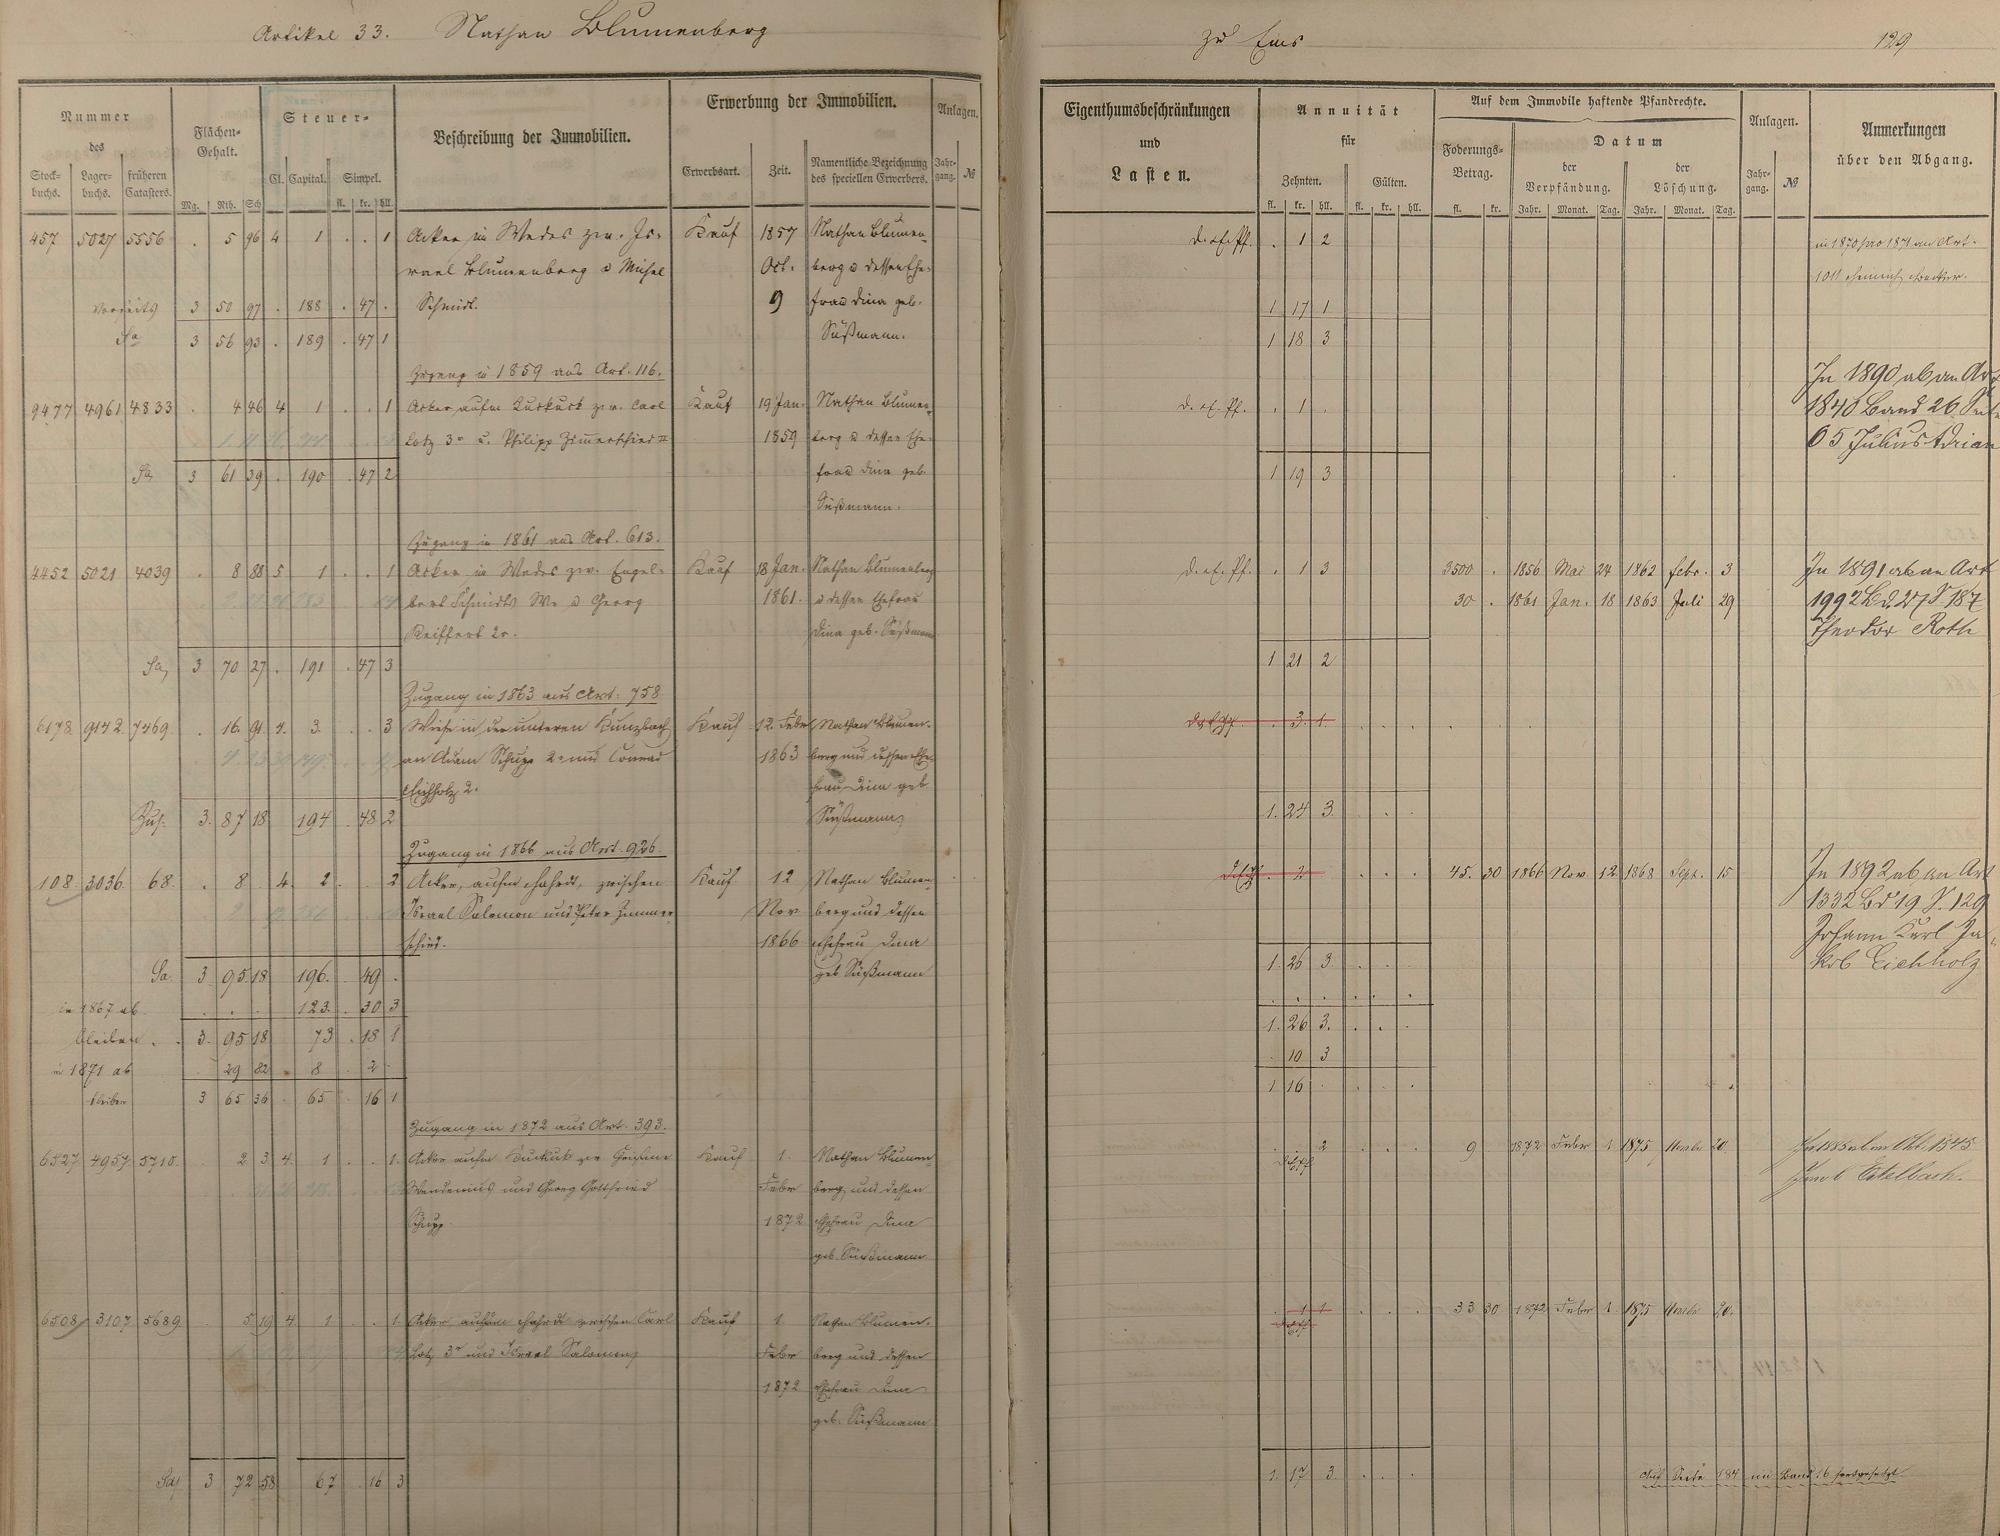 Artikel 33. Nathan Blumenberg
zu Ems
129
Nummer
des
Stock-
buchs.
Lager-
buchs.
früheren
Catasters.
Flächen-
Gehalt.
Mg. Rth. Sch.
Steuer-
Cl. Capital. Simpel.
fl. kr. hll.
Beschreibung der Immobilien.
Erwerbung der Immobilien.
Erwerbsart. Zeit.
Namentliche Bezeichnung
des speciellen Erwerbers.
Anlagen.
Jahr-
gang. №
Eigenthumsbeschränkungen
und
Lasten.
Annuität
für
Zehnten. Gülten.
fl. kr. hll. fl. kr. hll.
Auf dem Immobile haftende Pfandrechte.
Foderungs-
Betrag.
fl. kr.
Datum
der
Verpfändung.
der
Löschung.
Jahr. Monat. Tag. Jahr. Monat. Tag.
Anlagen.
Jahr-
gang. №
Anmerkungen
über den Abgang.
457 5027 5556 . 5 96 4 1 . . 1 Acker in Weder zw. Is- Kauf 1857 Nathan Blumen-
rael Blumenberg u Michel Oct. berg u dessen Ehe-
3 50 97 . 188 . 47 . Schmidt. 9 frau Dina geb.
Sa 3 56 93 . 189 . 47 1 Süßmann.
. 1 2
1 17 1
1 18 3
in 1870 pro 1871 an Art.
1011 Heinrich
Zugang in 1859 aus Art. 116.
9477 4961 4833 . 4 46 4 1 . . 1 Acker aufm Kukuck zw. Carl Kauf 19 Jan. Nathan Blumen-
Lotz 3r u. Philipp Zimmerschied II 1859 berg u dessen Ehe-
Sa 3 61 39 . 190 . 47 2 frau Dina geb.
Süßmann.
. 1 .
1 19 3
In 1890 ab an Art
1840 Band 26 Seite
65 Julius Adrian
Zugang in 1861 aus Art. 613.
4452 5021 4039 . 8 88 5 1 . . 1 Acker in Weder zw. Engel- Kauf 18 Jan. Nathan Blumenberg
bert Schmidts We u Georg 1861. u dessen Ehefrau
Keiffert 2r. Dina geb. Süßmann
Sa 3 70 27 . 191 . 47 3
. 1 3 3500 . 1856 Mai 24 1862 Febr. 3
30 . 1861 Jan. 18 1863 Juli 29
1 21 2
In 1891 ab an Art
1992 Bd. 27 S 187
Theodor Roth
Zugang in 1863 aus Art. 758
6178 9142 7469 . 16. 91 4. 3. . . 3 Wiese in der unteren Kunzbach Kauf 12. Febr Nathan Blumen-
an Adam Schupp 2r und Conrad 1863 berg und dessen Ehe-
Eichholz 2. frau Dina geb
Zus. 3. 87 18 194 . 48 2 Süßmann
. 3. 1.
1. 24 3.
Zugang in 1866 aus Art. 926.
108. 3036. 68. . 8 . 4. 2 . . 2 Acker, aufm Hahrdt, zwischen Kauf 12 Nathan Blumen-
Israel Salomon und Peter Zimmer- Nov berg und dessen
schied. 1866 Ehefrau Dina
Sa. 3 95 18 196. . 49 . geb Süßmann
in 1867 ab . . . 123. . 30 3
bleiben . . 3. 95 18 73 . 18 1
in 1871 ab 29 82 . 8 . 2 .
bleiben 3 65 36 . 65 . 16 1
. 2 . 45. 30 1866 Nov. 12. 1868 Sept. 15
1. 26 3.
1. 26 3.
10 3
1 16 .
In 1892 ab an Art
1332 Bd 19 S. 129
Johann Karl Ja-
kob Eichholz
Zugang in 1872 aus Art. 393.
6527 4957 5710 . 2 3 4. 1 . . 1. Acker aufm Kukuk zw Kauf 1. Nathan Blumen-
und Georg Gottfried Febr berg und dessen
Schupp. 1872 Ehefrau Dina
geb. Süßmann
. . 2 9 1872 Febr 1. 1875 20.
In 1885 ab an Art. 1545
Jacob Eitelbach.
6508 3107 5689 . 5 19 4. 1 . . 1. Acker aufm Hahrdt zwischen Carl Kauf 1. Nathan Blumen-
Lotz 3r und Israel Salomon Febr berg und dessen
1872 Ehefrau Dina
geb. Süßmann
. 1 1 33 30 1872 Febr 1. 1875 20.
Sa 3 72 58 67 . 16 3
1. 17 3.
Auf Seite 184 im Band 16 fortgesetzt.